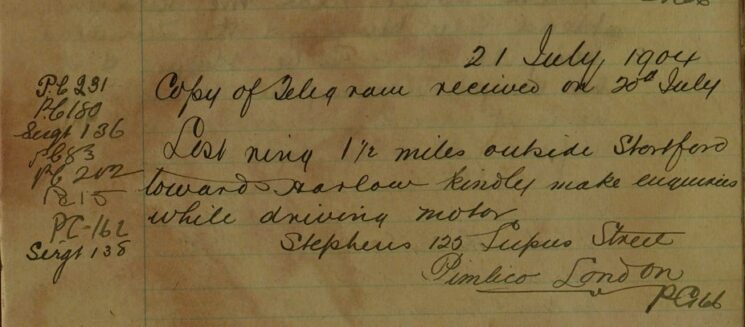 21 July, 1904
Copy of Telegram received on 20th July
Lost ring 1½ miles outside Stortford
toward Harlow kindly make enquiries
while driving motor
Stephens 125 Lupus Street
Pimlico London
PC 166
PC 231
PC 180
Sergt 136
PC 83
PC 202
215
PC-162
Sergt 138